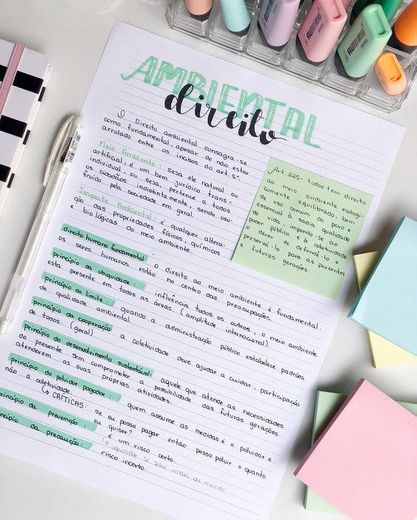 AMBIENTAL
direito
O Direito ambiental consagra-se
como fundamental, apesar de não estar
arrolado entre os incisos ao art 5º
Meio Ambiente: seja ele natural ou
artificial, é um bem jurídico trans-
individual, ou seja, pertence a todos
os cidadãos indistintamente, sendo usu-
fruído pela sociedade em geral.
Impacto Ambiental: é qualquer altera-
ção das propriedades físicas, químicas
e biológicas do meio ambiente.
Art 225- todos tem direito
ao meio ambiente ecologi-
camente equilibrado, bem
de uso comum do povo e
essencial à sadia qualidade
de vida, impondo-se ao
poder público e à coletividade
o dever de defendê-lo e
preservá-lo para as presentes
e futuras gerações
direito humano fundamental: o direito ao meio ambiente é fundamental.
os seres humanos estão no centro das preocupações.
princípio da ubiquidade: influência todos os outros, o meio ambiente
esta presente em todas as áreas (amplitude internacional)
princípio do limite: quando a administração pública estabelece padrões
de qualidade ambiental.
princípio da cooperação: a coletividade deve ajudar a cuidar, participação
de todos. (geral)
princípio do desenvolvimento sustentável: aquele que atende as necessidades
do presente sem comprometer a possibilidade das futuras gerações
atenderem as suas próprias atividades.
princípio do poluidor pagador: quem assume as medidas é o poluidor e
não a coletividade.
↳ CRÍTICAS: se eu posso pagar então posso poluir o quanto
eu quiser?
princípio da prevenção: é um risco certo.
princípio da precaução: risco incerto.